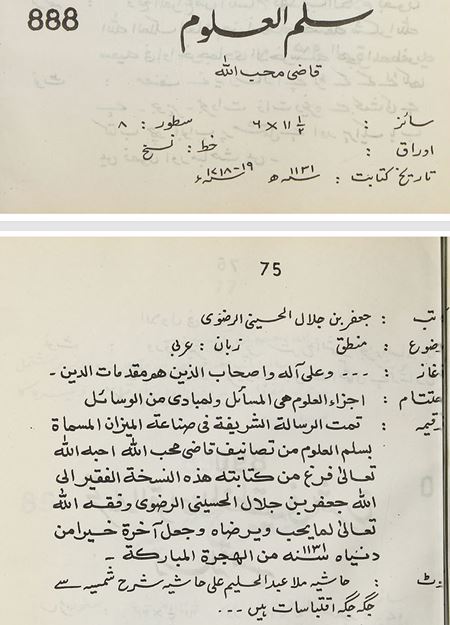 888
سلم العلوم
قاضی محب اللہ
سائز : ۶ × ۱۱ ۱/۲ سطور : ۸
اوراق : خط : نسخ
تاریخ کتابت : ۱۱۳۱ ھ ۱۷۱۸-۱۹ ء
75
تب : جعفر بن جلال الحسینی الرضوی
وضوع : منطق زبان : عربی
غاز : ۔۔۔ وعلی آلہ واصحاب الذین ھم مقدمات الدین ۔
ختتام : اجزاء العلوم ھی المسائل ولمبادی من الوسائل
رقیمہ : تمت الرسالة الشریفة فی صناعة المیزان المسماة
بسلم العلوم من تصانیف قاضی محب اللہ احبہ اللہ
تعالیٰ فرغ من کتابتہ ھذہ النسخة الفقیر الی
اللہ جعفر بن جلال الحسینی الرضوی وفقہ اللہ
تعالیٰ لما یحب ویرضاہ وجعل آخرة خیرا من
دنیاہ سنہ ۱۱۳۱ من الھجرة المبارکة ۔
وٹ : حاشیہ ملا عبد الحلیم علی حاشیہ شرح شمسیہ سے
جگہ جگہ اقتباسات ہیں ۔۔۔